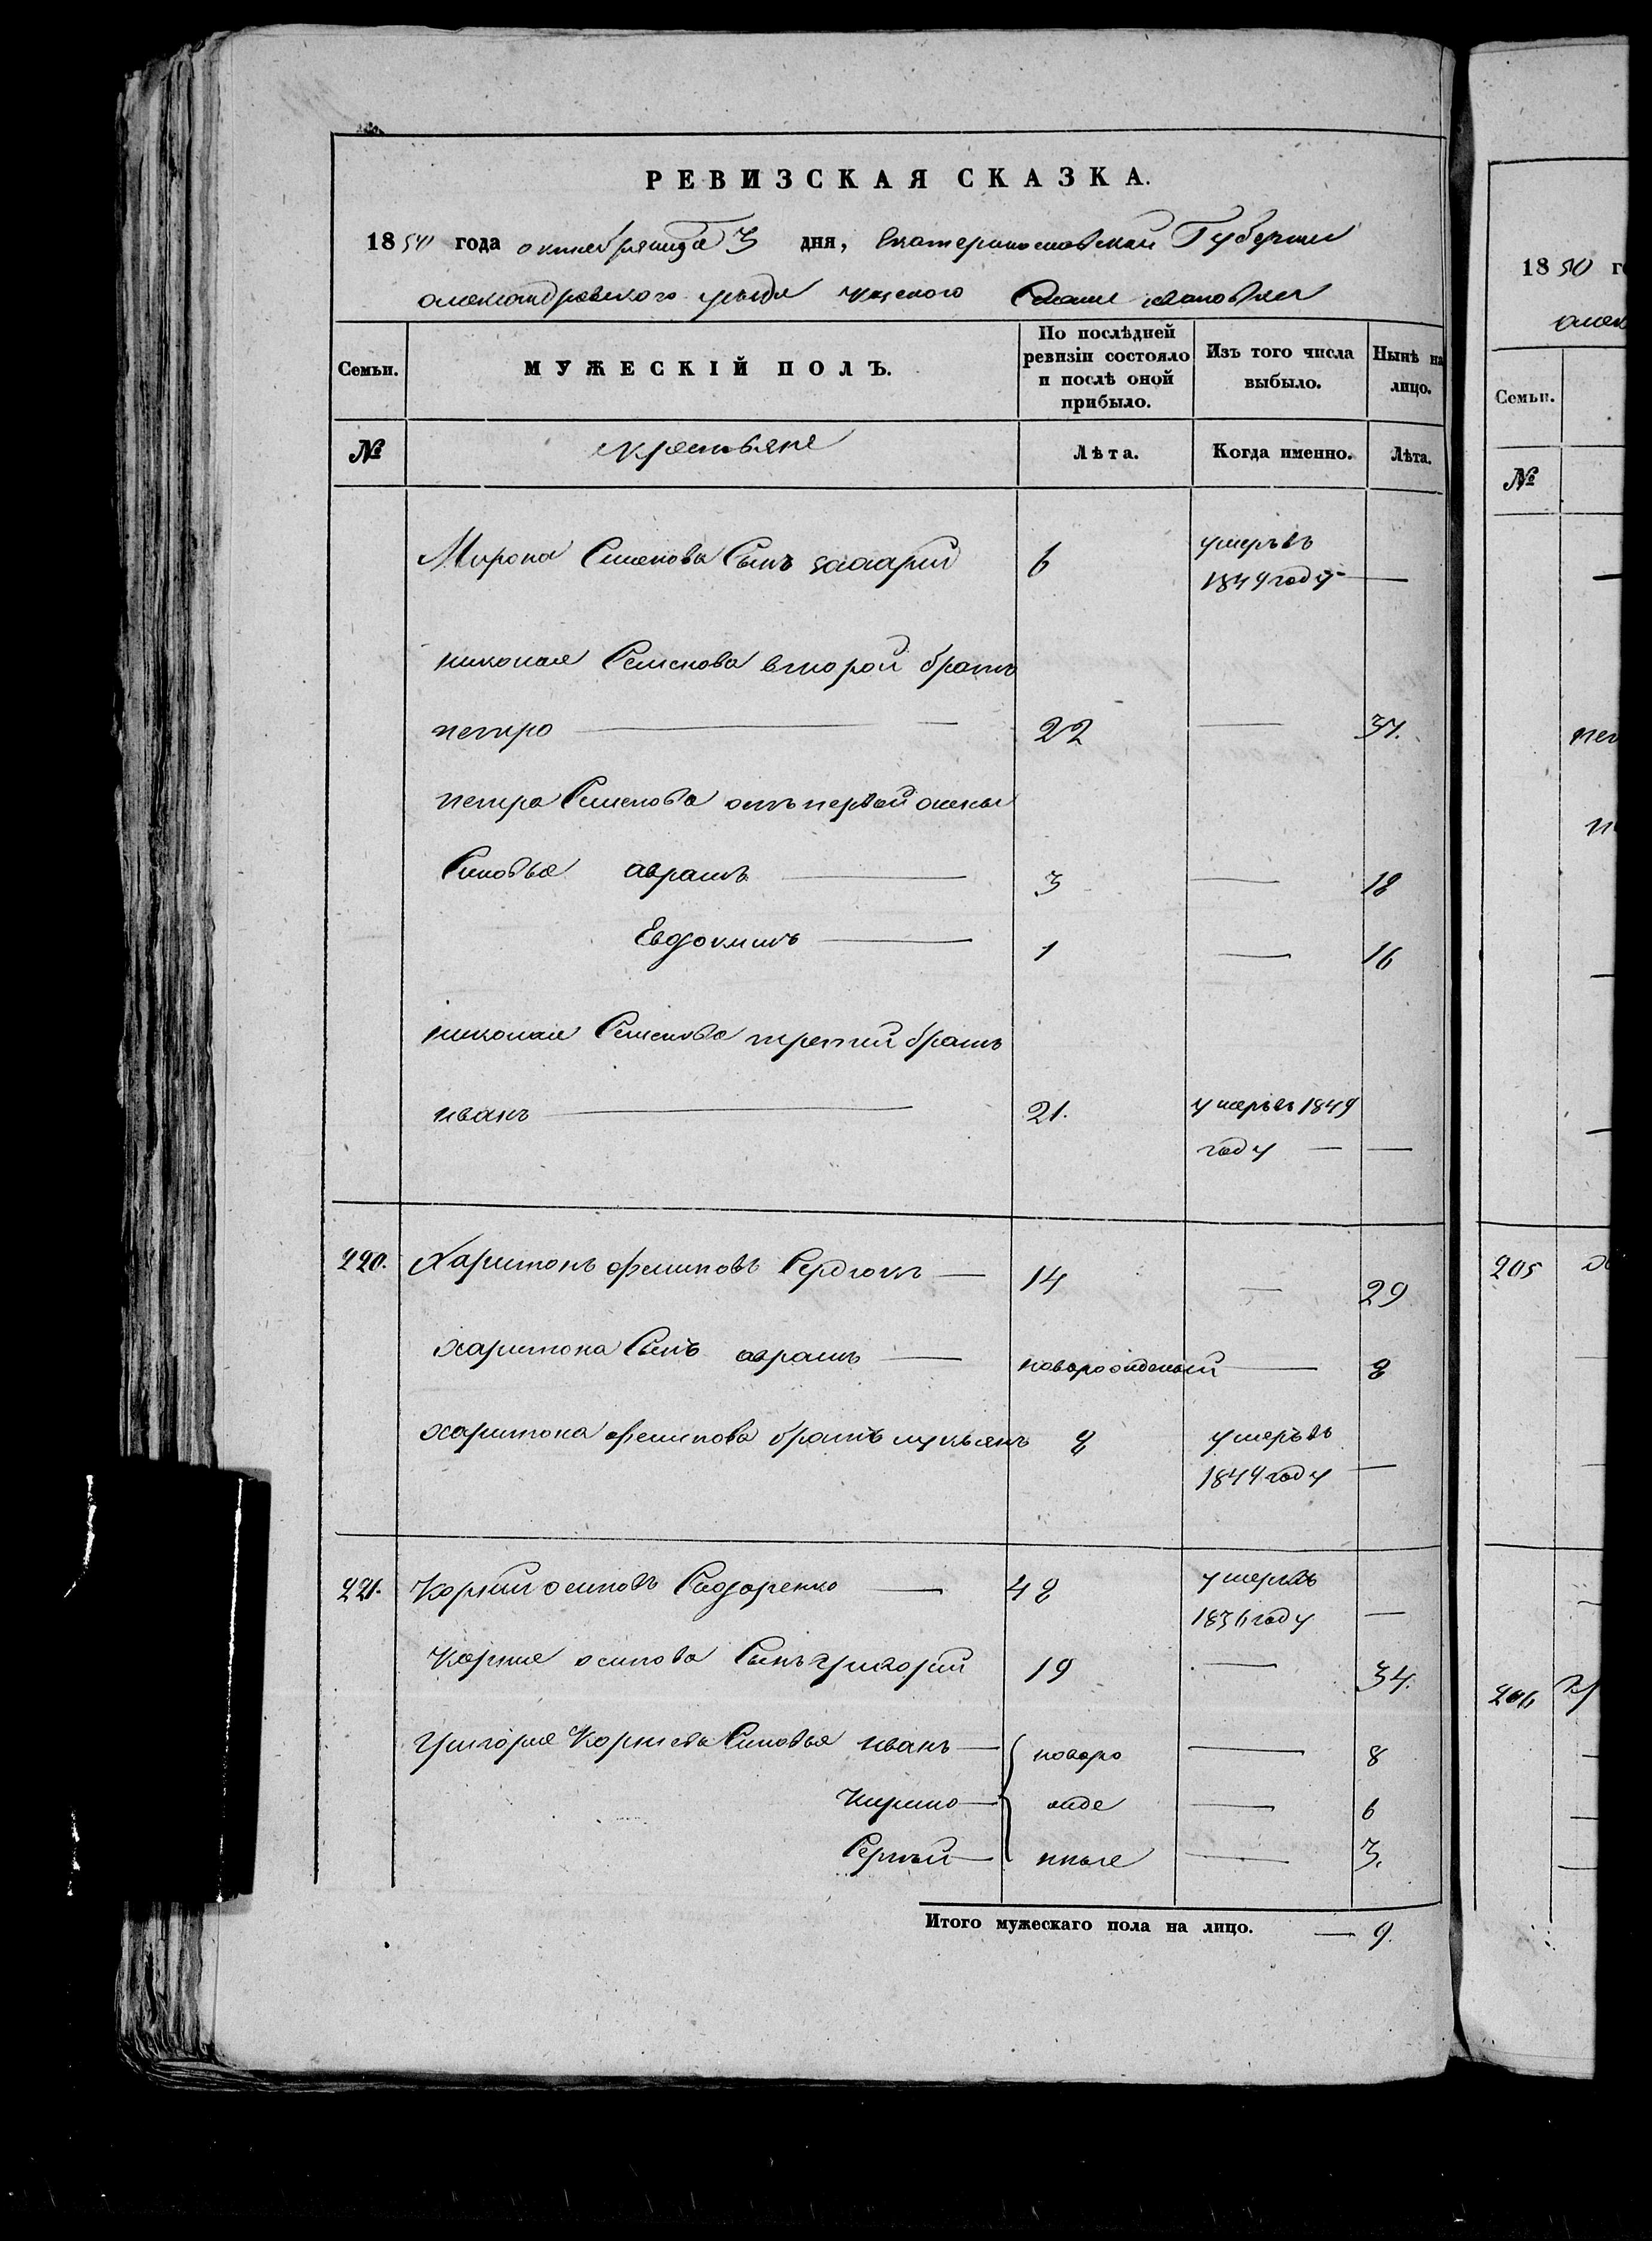 РЕВИЗСКАЯ СКАЗКА.
1850 года октября мца 3 дня, Екатеринославской Губернии
александровского уезда Села
Семьи. МУЖЕСКІЙ ПОЛЪ. По послѣдней ревизіи состояло и послѣ оной прибыло. Изъ того числа выбыло. Нынѣ на лицо.
№ крестьяне Лѣта. Когда именно. Лѣта.
Мирона Семенова Сынъ захарий 6 умеръ въ
1849 году —
николая Семенова второй братъ
петро — 22 — 37.
петра Семенова отъ первой жены
Синовья аврамъ — 3 — 18
Евдокимъ — 1 — 16
николая Семенова третий братъ
иванъ — 21. умеръ въ 1849
году — —
220. Харитонъ Сердюкъ — 14 — 29
харитона Сынъ аврамъ — новорожденый — 8
харитона братъ лукьянъ умеръ въ
1844 году —
221. Корний осиповъ Сидоренко — 48 умеръ въ
1836 году —
Корния осипова Сынъ григорий 19 — 34.
григория Корниева Синовья иванъ — новоро — 8
Кирило — жде — 6
Сергий — нные — 3.
Итого мужескаго пола на лицо. — 9.
1850 го
алек
Семьи.
№
пет
205
206